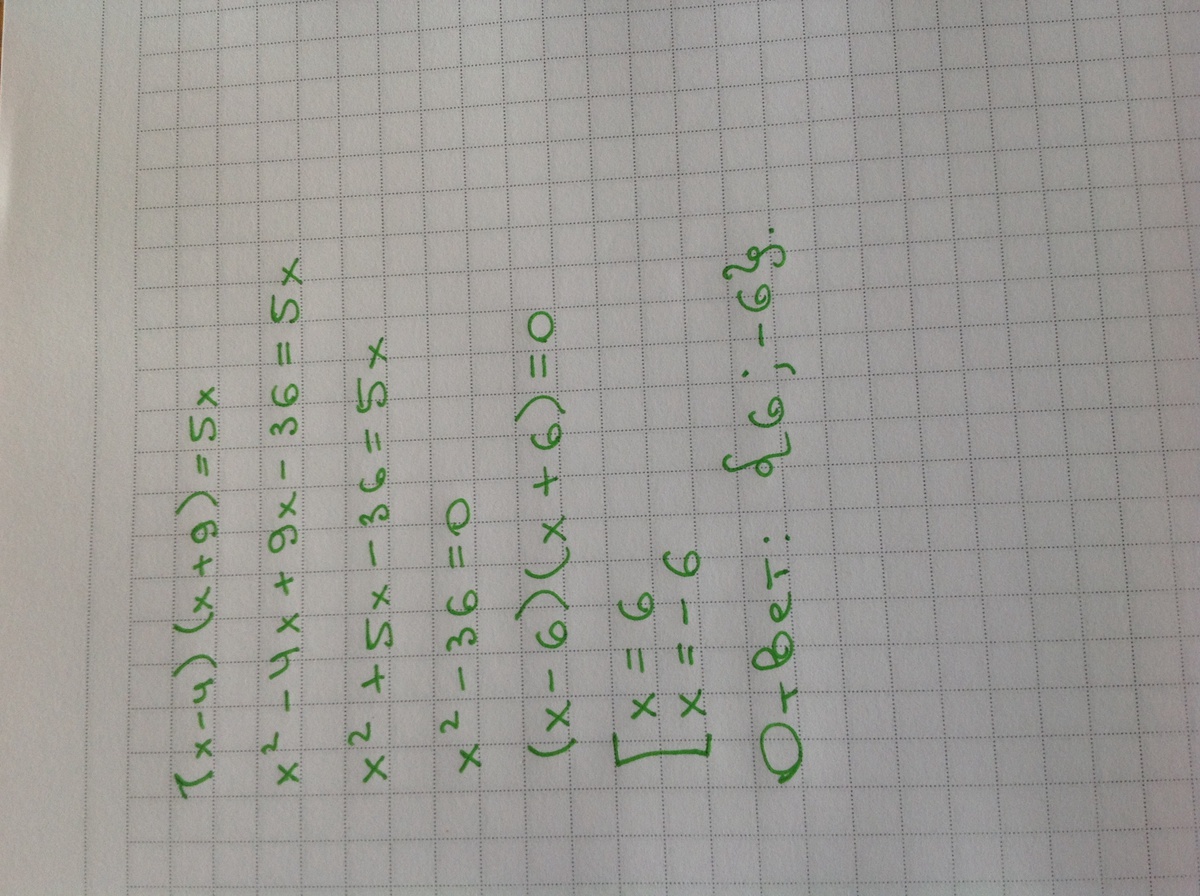 (x-4)(x+9)=5x
x²-4x+9x-36=5x
x²+5x-36=5x
x²-36=0
(x-6)(x+6)=0
[x=6
x=-6
Ответ: {6;-6}.